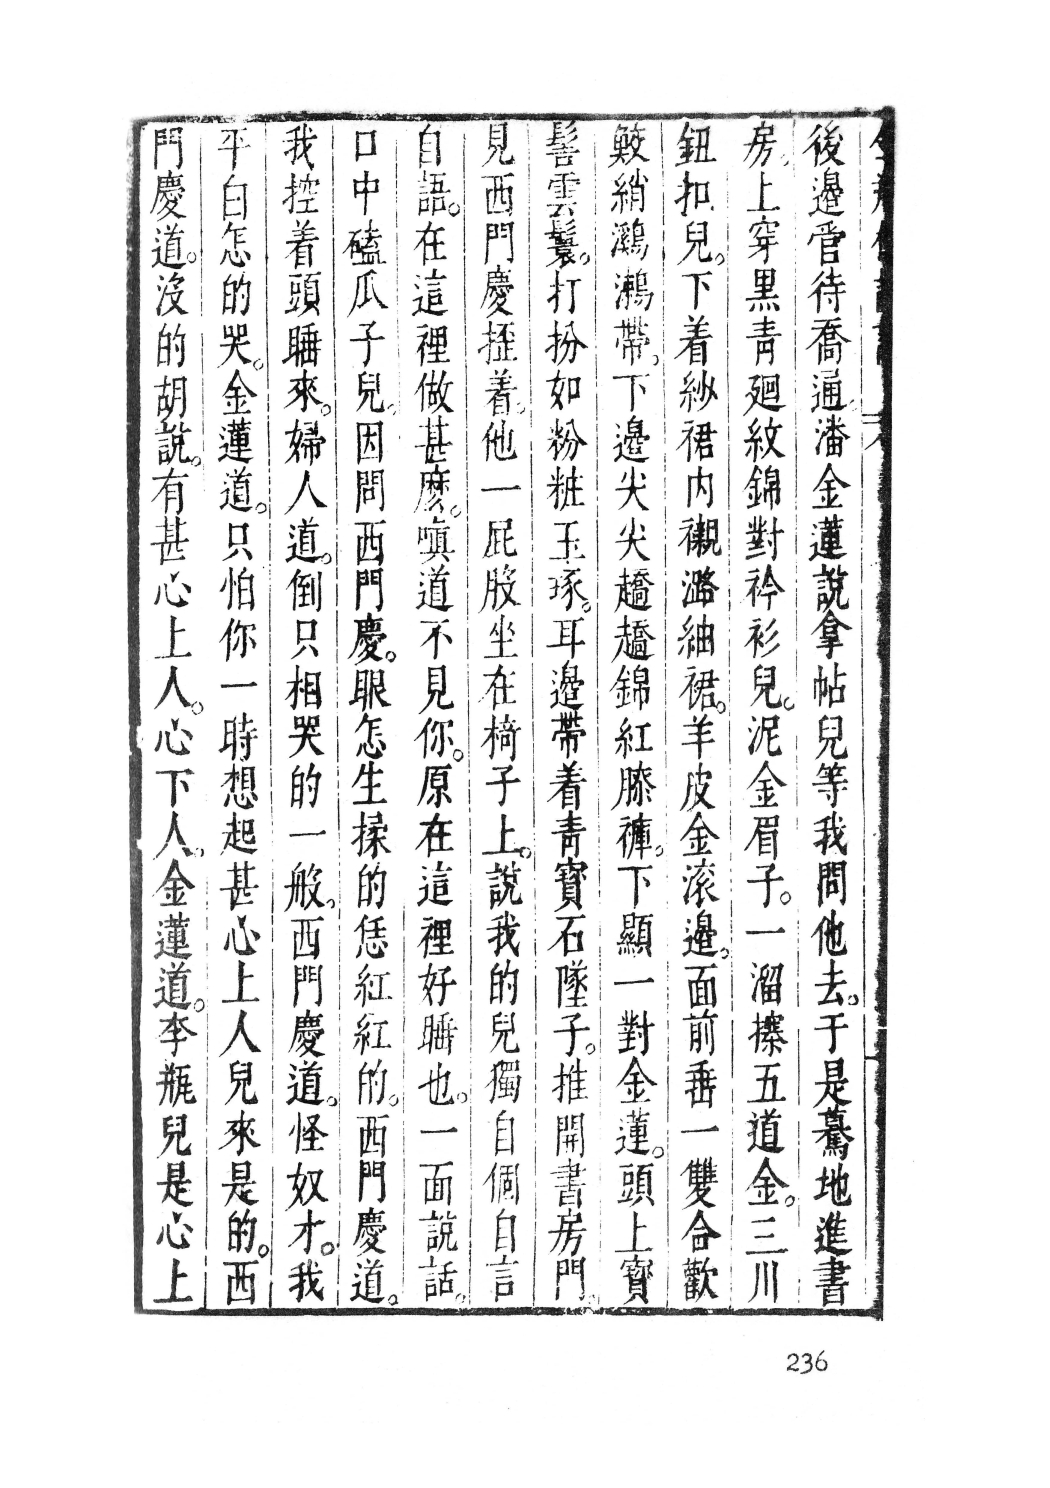 後邉管待喬通潘金蓮說拿帖兒等我問他去。于是驀地進書
房。上穿黑青廻紋錦對衿衫兒。泥金眉子。一溜㩟五道金。三川
鈕扣兒。下着紗裙内襯潞紬裙。羊皮金滚邉。面前垂一雙合歡
鮫綃鸂鶒帶。下邉尖尖趫趫錦紅膝褲。下顯一對金蓮。頭上寳
髻雲鬟。打扮如粉粧玉琢。耳邉帶着青寳石墜子。推開書房門。
見西門慶𢮞着。他一屁股坐在椅子上。說我的兒獨自個自言
自語。在這裡做甚麽。嗔道不見你。原在這裡好睡也。一面說話。
口中磕瓜子兒。因問西門慶。眼怎生揉的恁紅紅的。西門慶道。
我控着頭睡來。婦人道。倒只相哭的一般。西門慶道。怪奴才。我
平白怎的哭。金蓮道。只怕你一時想起甚心上人兒來是的。西
門慶道。沒的胡說。有甚心上人。心下人。金蓮道。李瓶兒是心上
236